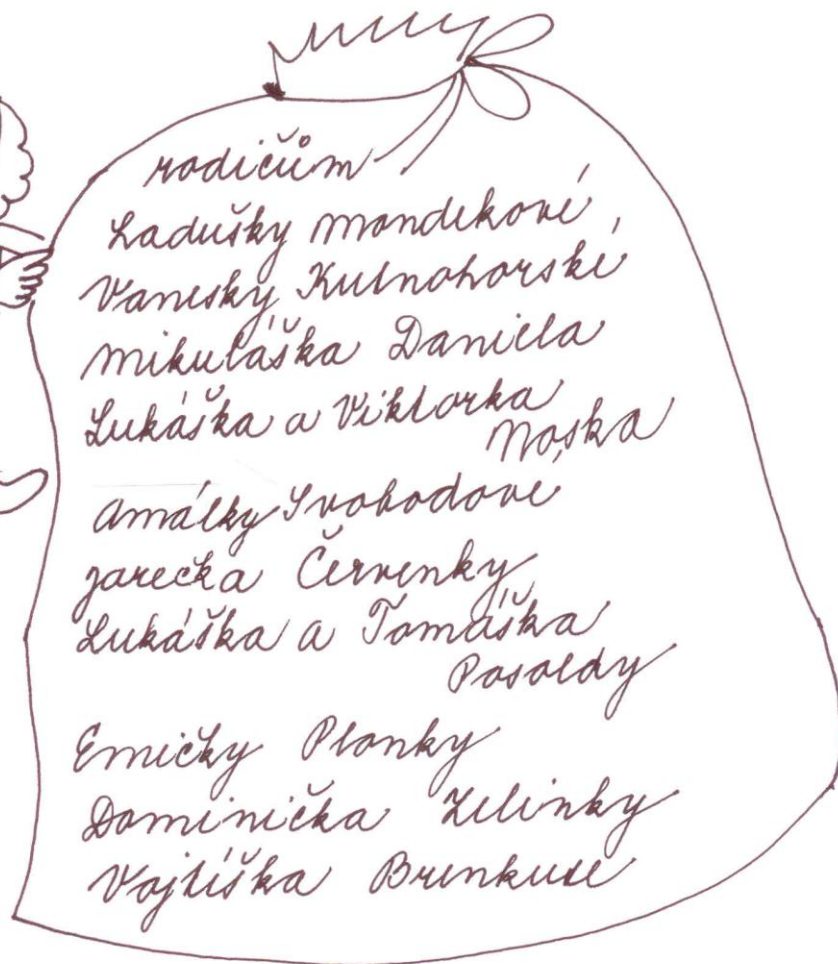 rodičům
Ladušky Mondekové,
Vanesky Kutnohorské
Mikuláška Daniela
Lukáška a Viktorka
Noska
Amálky Svobodové
Jarečka Červenky
Lukáška a Tomáška
Posoldy
Emičky Plonky
Dominička Zelinky
Vojtíška